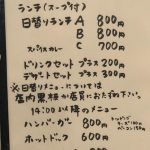 ランチ(スープ付)
日替りランチ A 800円
B 800円
スパイスカレー C 700円
ドリンクセット プラス 200円
デザートセット プラス 300円
※日替りメニューについては
店内黒板か店員におたずね下さい。
14:00以降のメニュー
ハンバーガー 800円
トッピング
チーズ100円
ベーコン150円
ホットドッグ 600円